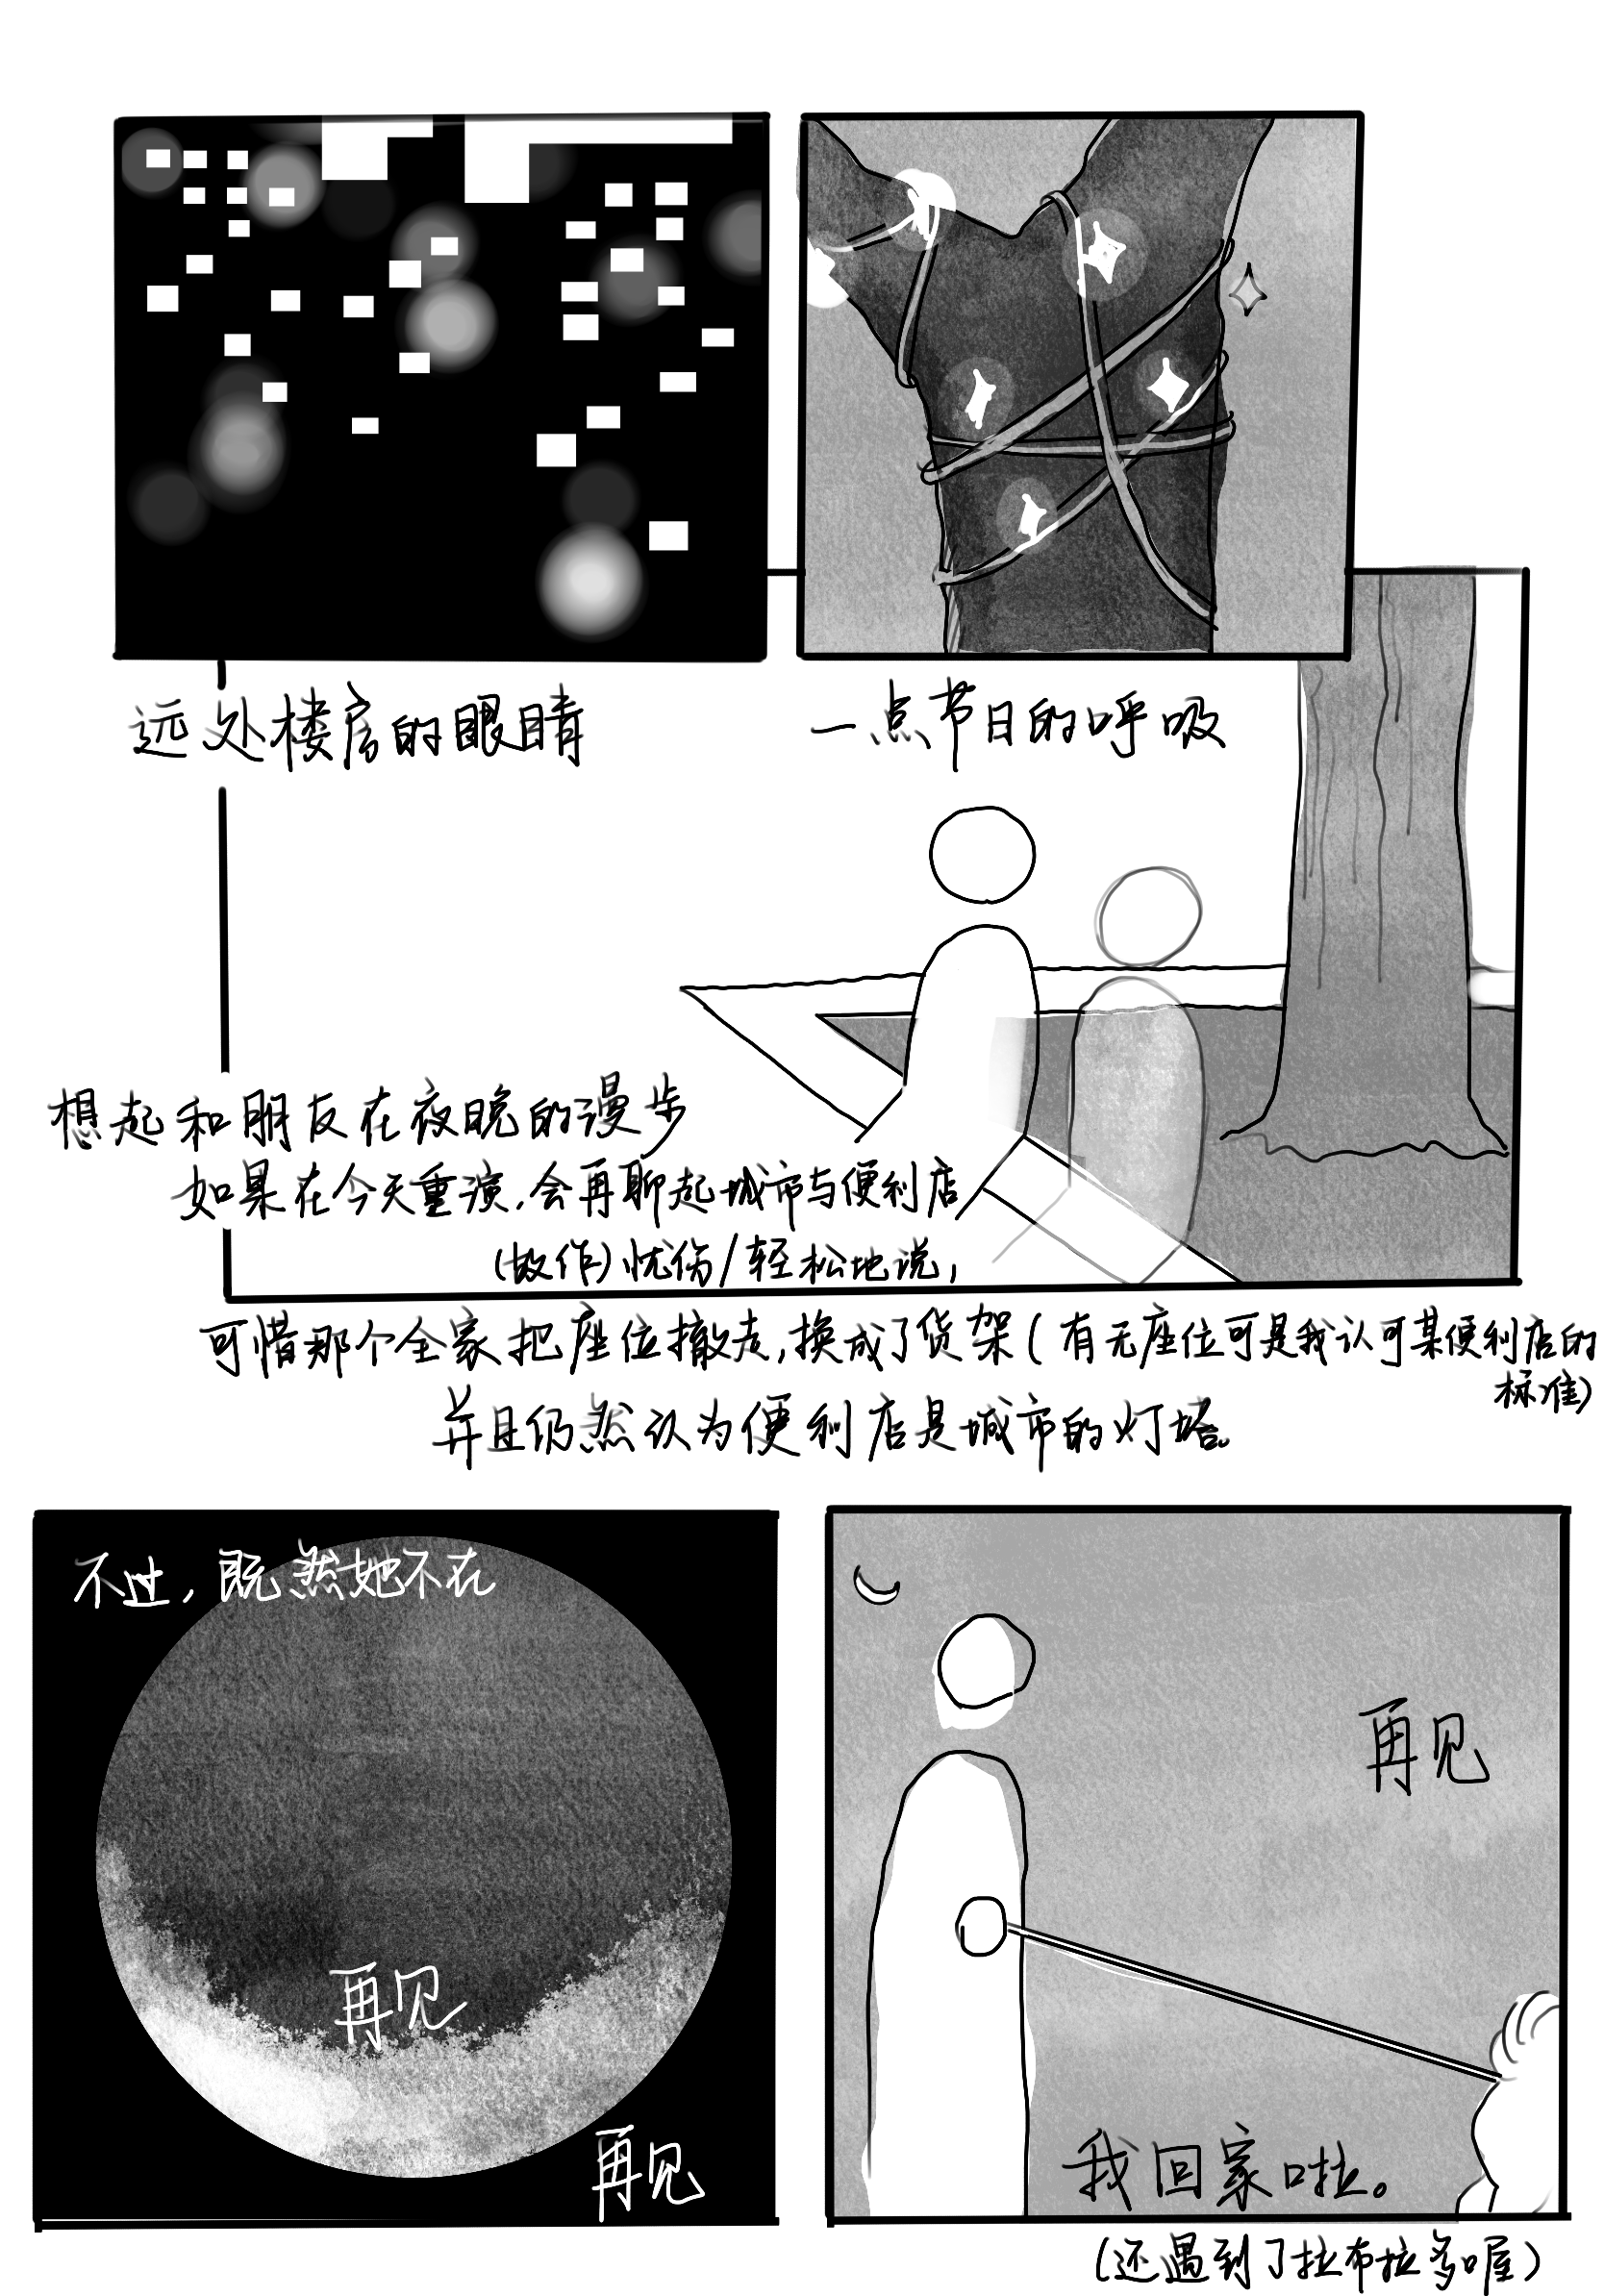 远处楼房的眼睛
一点节日的呼吸
想起和朋友在夜晚的漫步
如果在今天重演,会再聊起城市与便利店
(故作)忧伤/轻松地说,
可惜那个全家把座位撤走,换成了货架(有无座位可是我认可某便利店的
标准)
并且仍然认为便利店是城市的灯塔。
不过,既然她不在
再见
再见
再见
我回家啦。
(还遇到了拉布拉多喔)